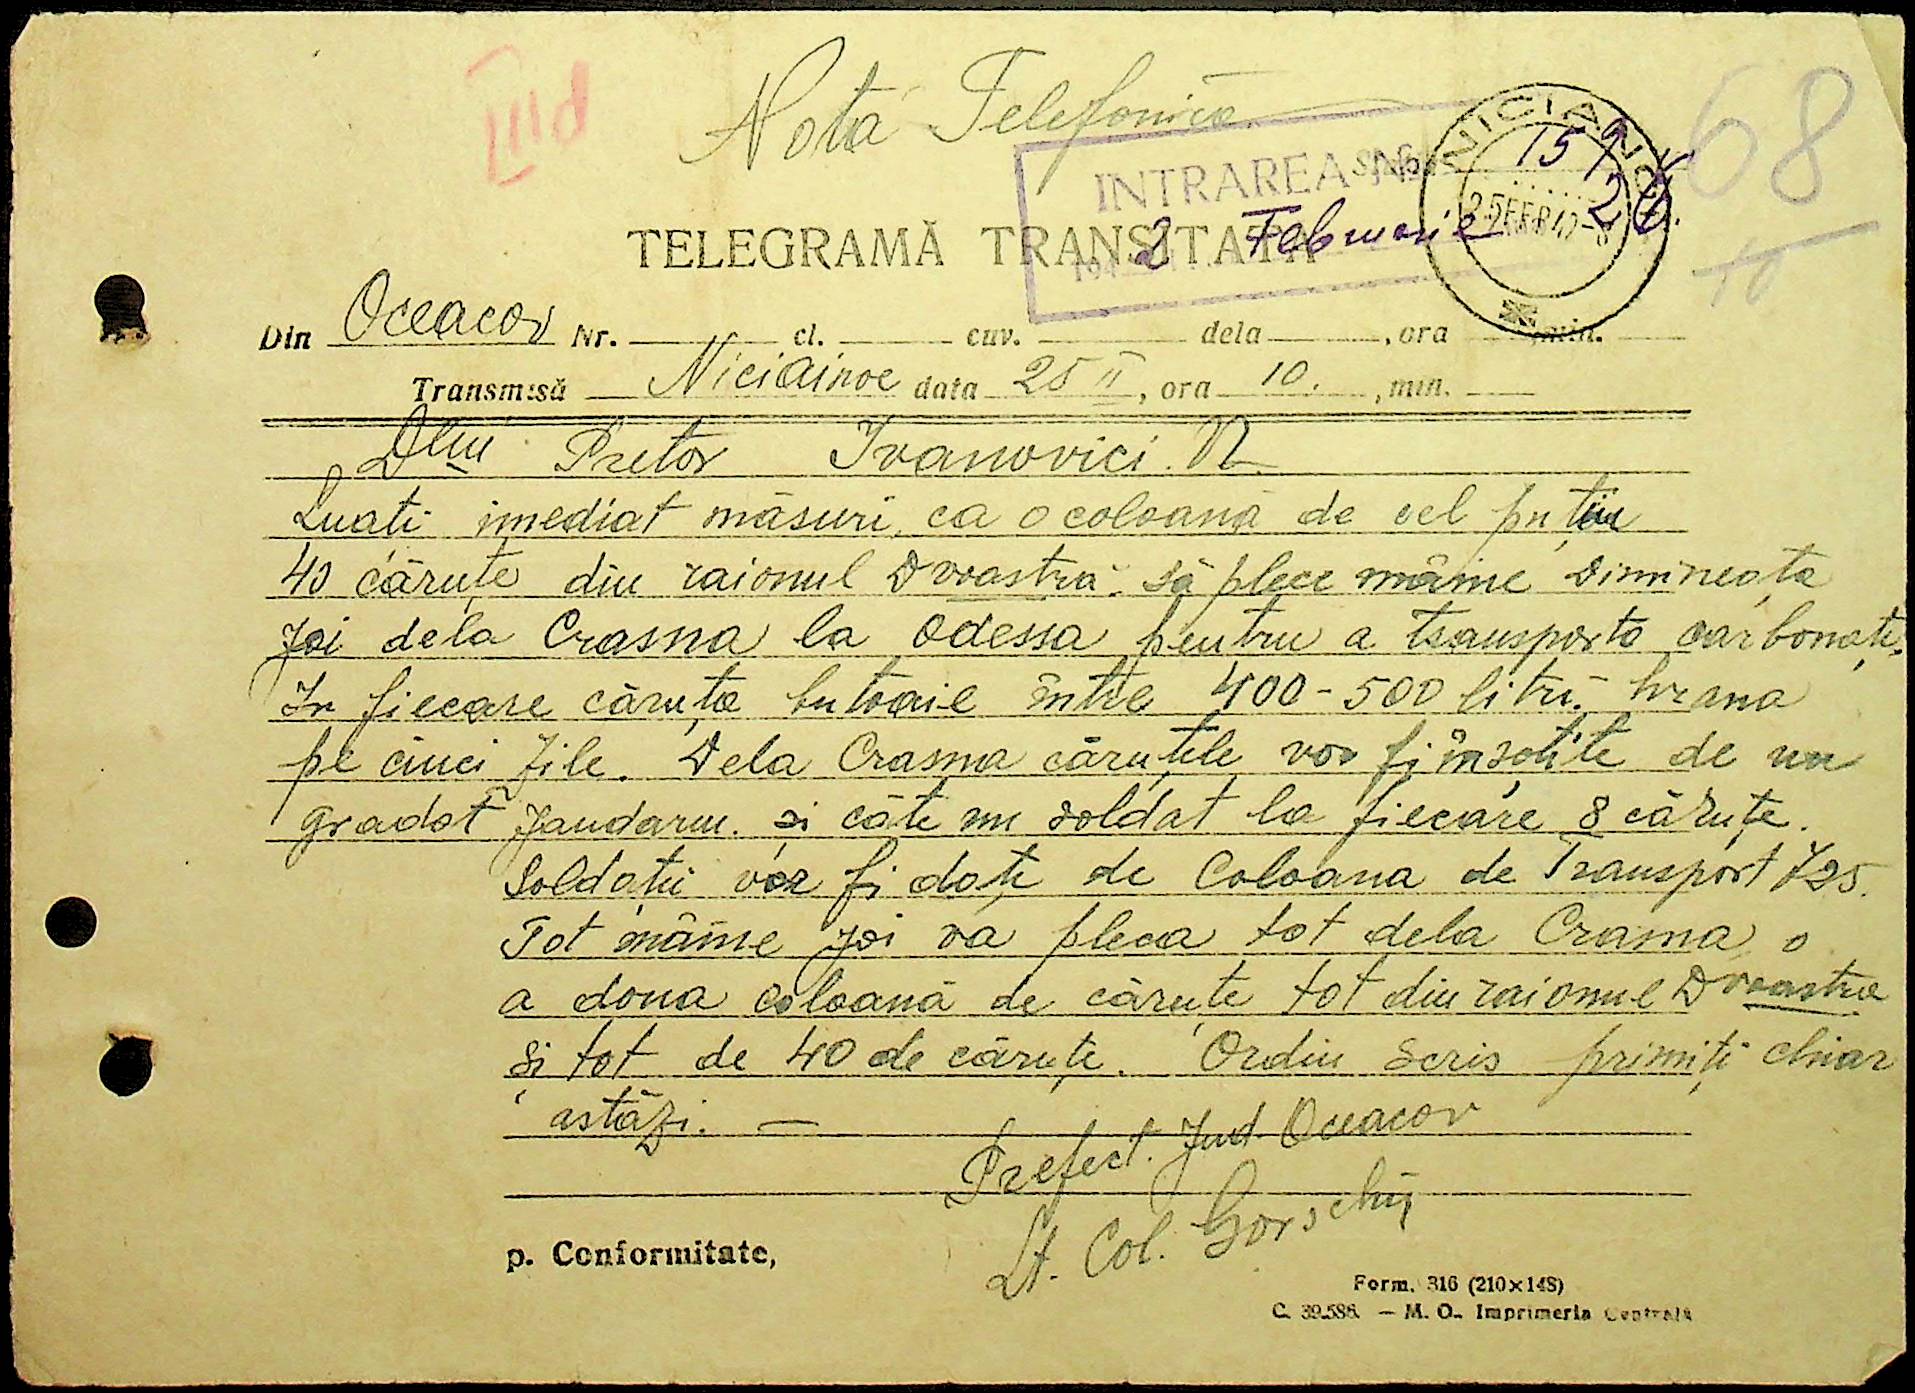 Notă Telefonica
68
10
INTRAREA No. 1519
2 Februarie 26
NICIAINOE
25 FEB 942
TELEGRAMĂ TRANSITATĂ
Din Oceacov Nr. cl. cuv. dela , ora min.
Transmisă Niciainoe data 25 II, ora 10. , min.
Dlui Pretor Ivanovici. N.
Luati imediat măsuri, ca o coloană de cel puțin
40 căruțe din raionul Dvoastră să plece mâine dimineața
Joi dela Crasna la Odessa pentru a transporta carbonați.
In fiecare căruța butoaie între 400-500 litri. hrana
pe cinci zile. Dela Crasna căruțele vor fi însoțite de un
gradat jandarm. și câte un soldat la fiecare 8 căruțe.
Soldații vor fi dați de Coloana de Transport 725.
Tot mâine joi va pleca tot dela Crasna o
a doua coloană de căruțe tot din raionul Dvoastra
și tot de 40 de căruțe. Ordin scris primiți chiar
astăzi. —
Prefect. Jud. Oceacov
Lt. Col. Gorschi
p. Conformitate,
Form. 316 (210×148)
C. 39.586. — M. O. Imprimeria Centrală